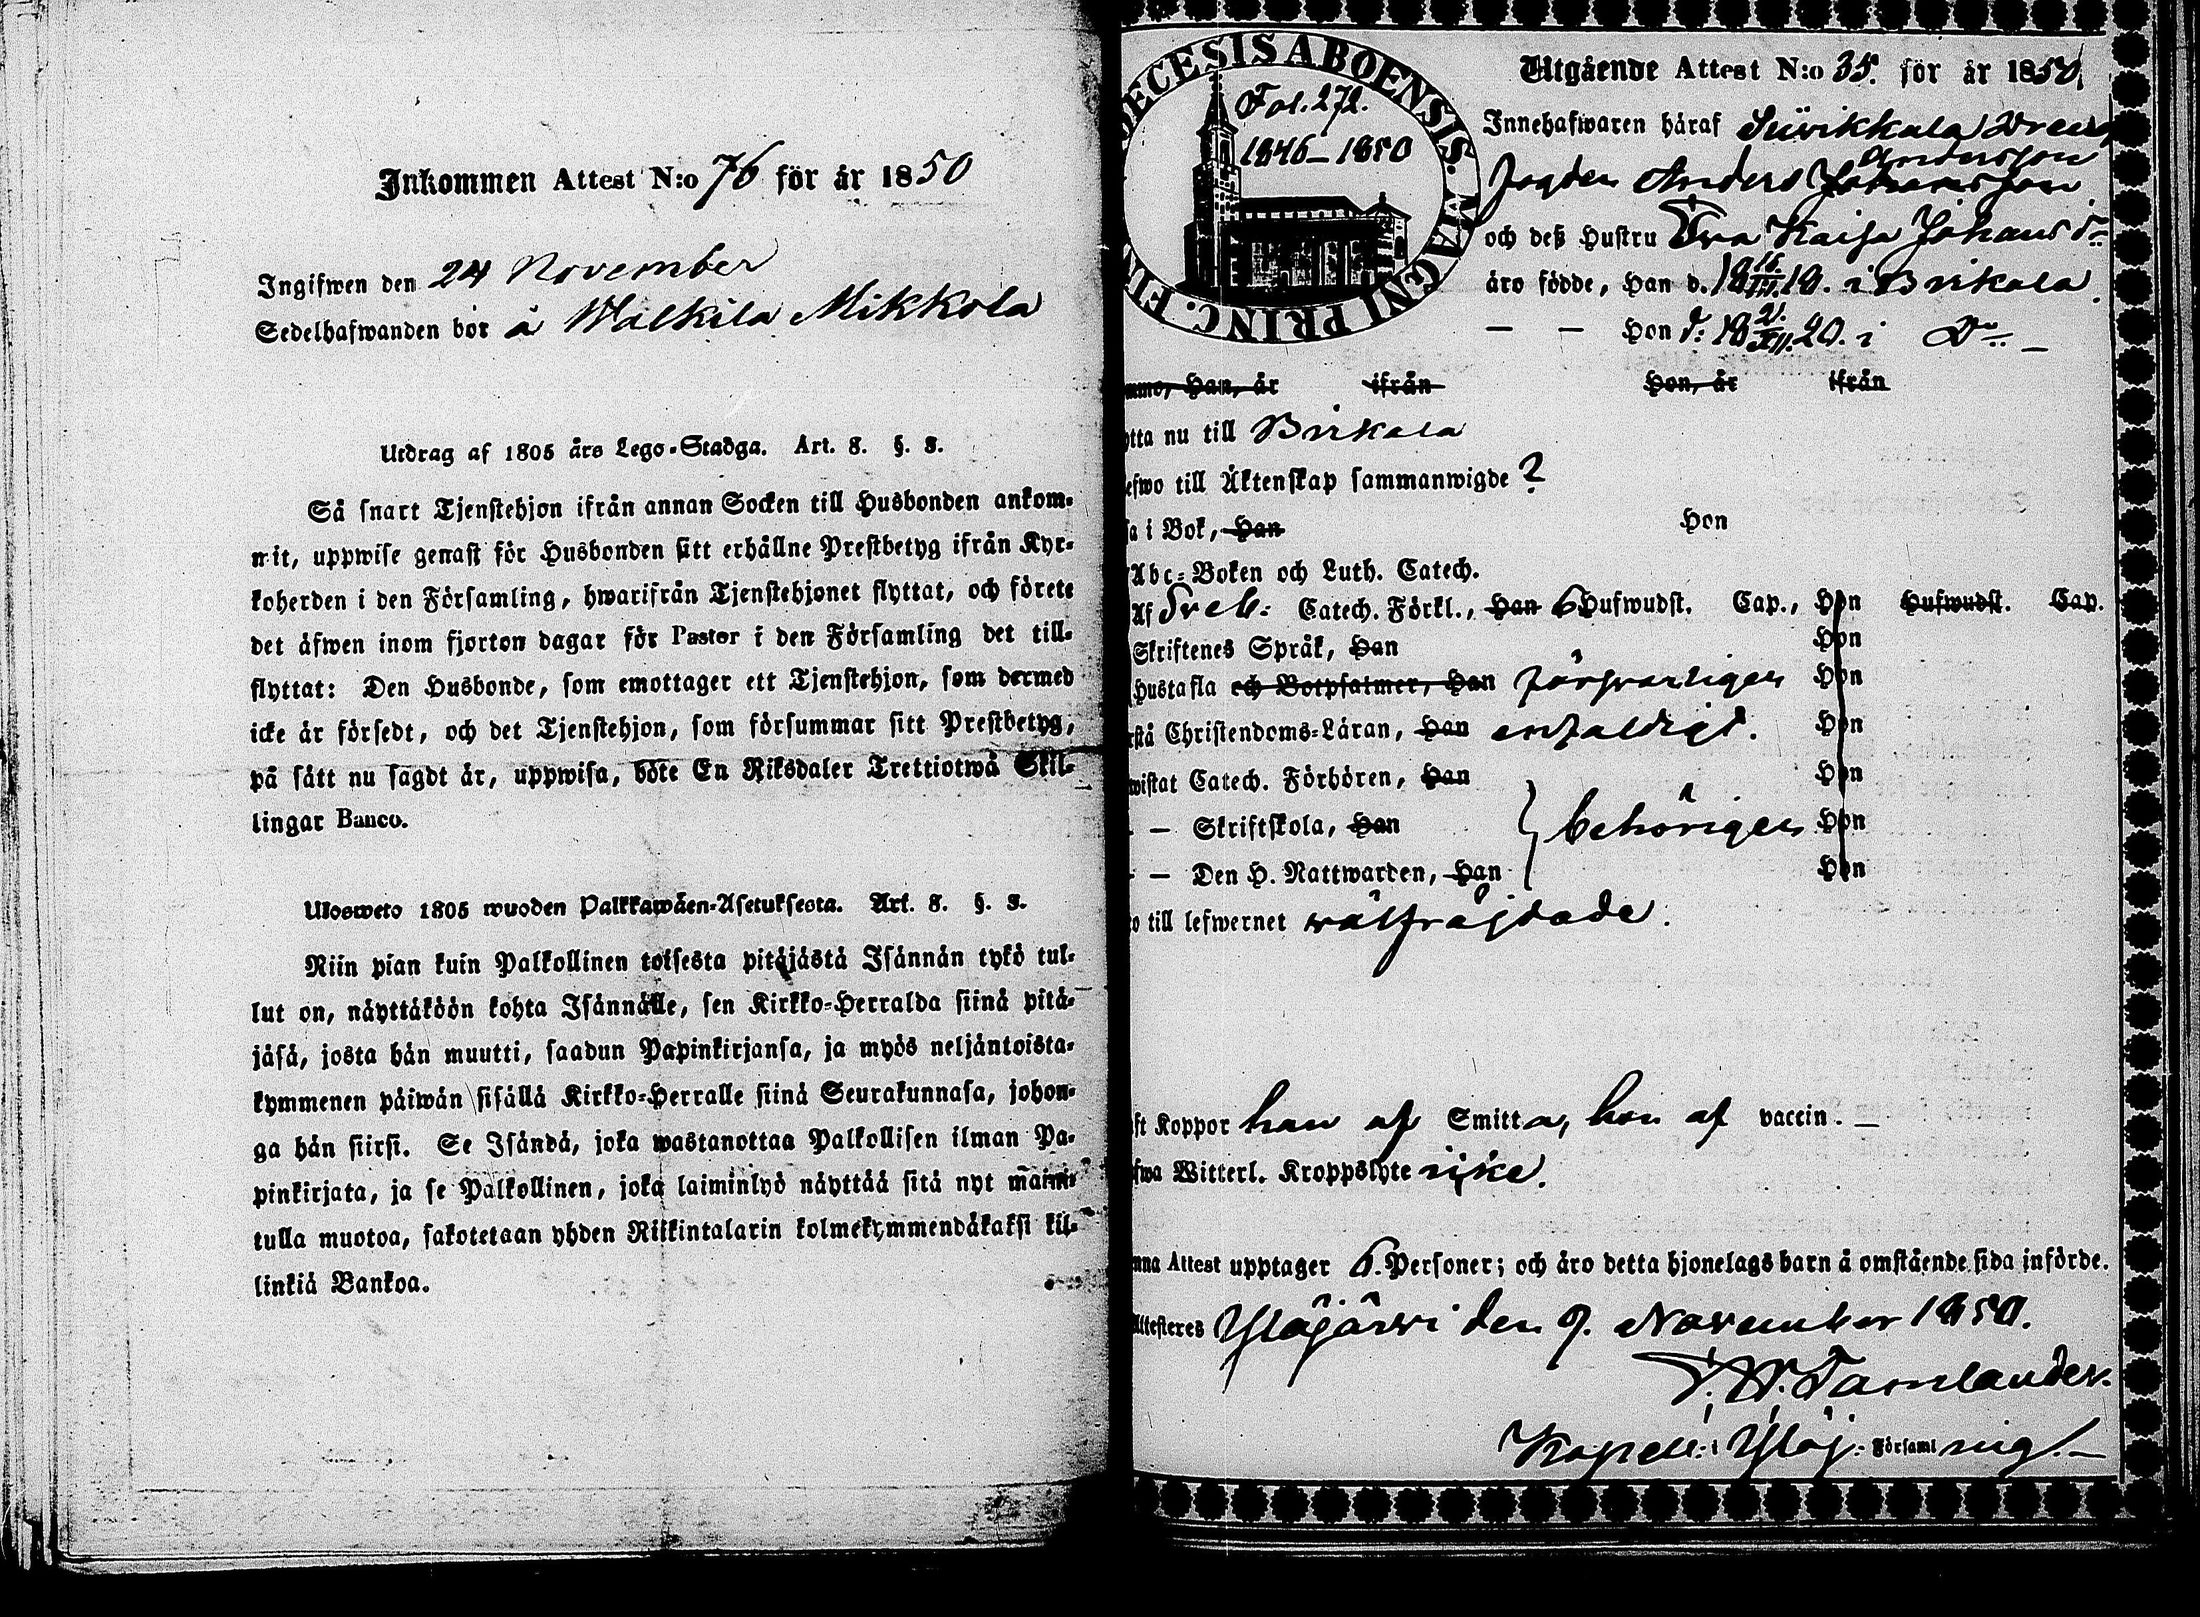 Inkommen Attest N:o 76 för år 1850
Ingifwen den 24 November
Sedelhafwanden bor å Walkila Mikkola
Utdrag af 1805 års Lego-Stadga. Art. 8. §. 3.
Så snart Tjenstehjon ifrån annan Socken till Husbonden ankom-
mit, uppwise genast för Husbonden sitt erhållne Prestbetyg ifrån Kyr-
koherden i den Församling, hwarifrån Tjenstehjonet flyttat, och förete
det äfwen inom fjorton dagar för Pastor i den Församling det till-
flyttat: Den Husbonde, som emottager ett Tjenstehjon, som dermed
icke är försedt, och det Tjenstehjon, som försummar sitt Prestbetyg,
på sätt nu sagdt är, uppwisa, böte En Riksdaler Trettiotwå Skil-
lingar Banco.
Ulosweto 1805 wuoden Palkkawäen-Asetuksesta. Art. 8. §. 3.
Niin pian kuin Palkollinen toisesta pitäjästä Isännän tykö tul-
lut on, näyttäköön kohta Isännälle, sen Kirkko-Herralda siinä pitä-
jäsä, josta hän muutti, saadun Papinkirjansa, ja myös neljäntoista-
kymmenen päiwän sisällä Kirkko-Herralle siinä Seurakunnasa, johon-
ga hän siirsi. Se Isändä, joka wastanottaa Palkollisen ilman Pa-
pinkirjata, ja se Palkollinen, joka laiminlyö näyttää sitä nyt maini-
tulla muotoa, sakotetaan yhden Riikintalarin kolmekymmendäkaksi kil-
linkiä Bankoa.
DECESIS ABOENSIS. MAGNI PRINC. FIN
Fol. 272.
1846–1850
Utgående Attest N:o 35. för år 1850.
Innehafwaren häraf Siivikkala Dreng
Andersson
fogden Anders Johansson
och deß Hustru Eva Kaisa Johansdr
äro födde, Han d. 18 16/III 18. i Birkala.
— — Hon d: 18 2/XII. 20. i Do —
mmo, Han, år ifrån Hon, år ifrån
ytta nu till Birkala
efwo till Äktenskap sammanwigde ?
sa i Bok, Han Hon
Abc-Boken och Luth. Catech.
Af Sveb: Catech. Förkl., Han 6 Hufwudst. Cap., Hon Hufwudst. Cap.
Skriftenes Språk, Han Hon
Hustafla och Botpsalmer, Han försvarligen Hon
rstå Christendoms-Läran, Han enfaldigt. Hon
wistat Catech. Förhören, Han Hon
– – Skriftskola, Han behörigen Hon
– – Den H. Nattwarden, Han Hon
o till lefwernet wälfrägdade.
ft Koppor han af Smitta, hon af vaccin. —
fwa Witterl. Kroppslyte icke.
nna Attest upptager 6. Personer; och äro detta hjonelags barn å omstående sida införde.
Attesteres Ylöjärvi den 9. November 1850.
F. W. Tamlander.
Kapell: i Ylöj: Församlning. —